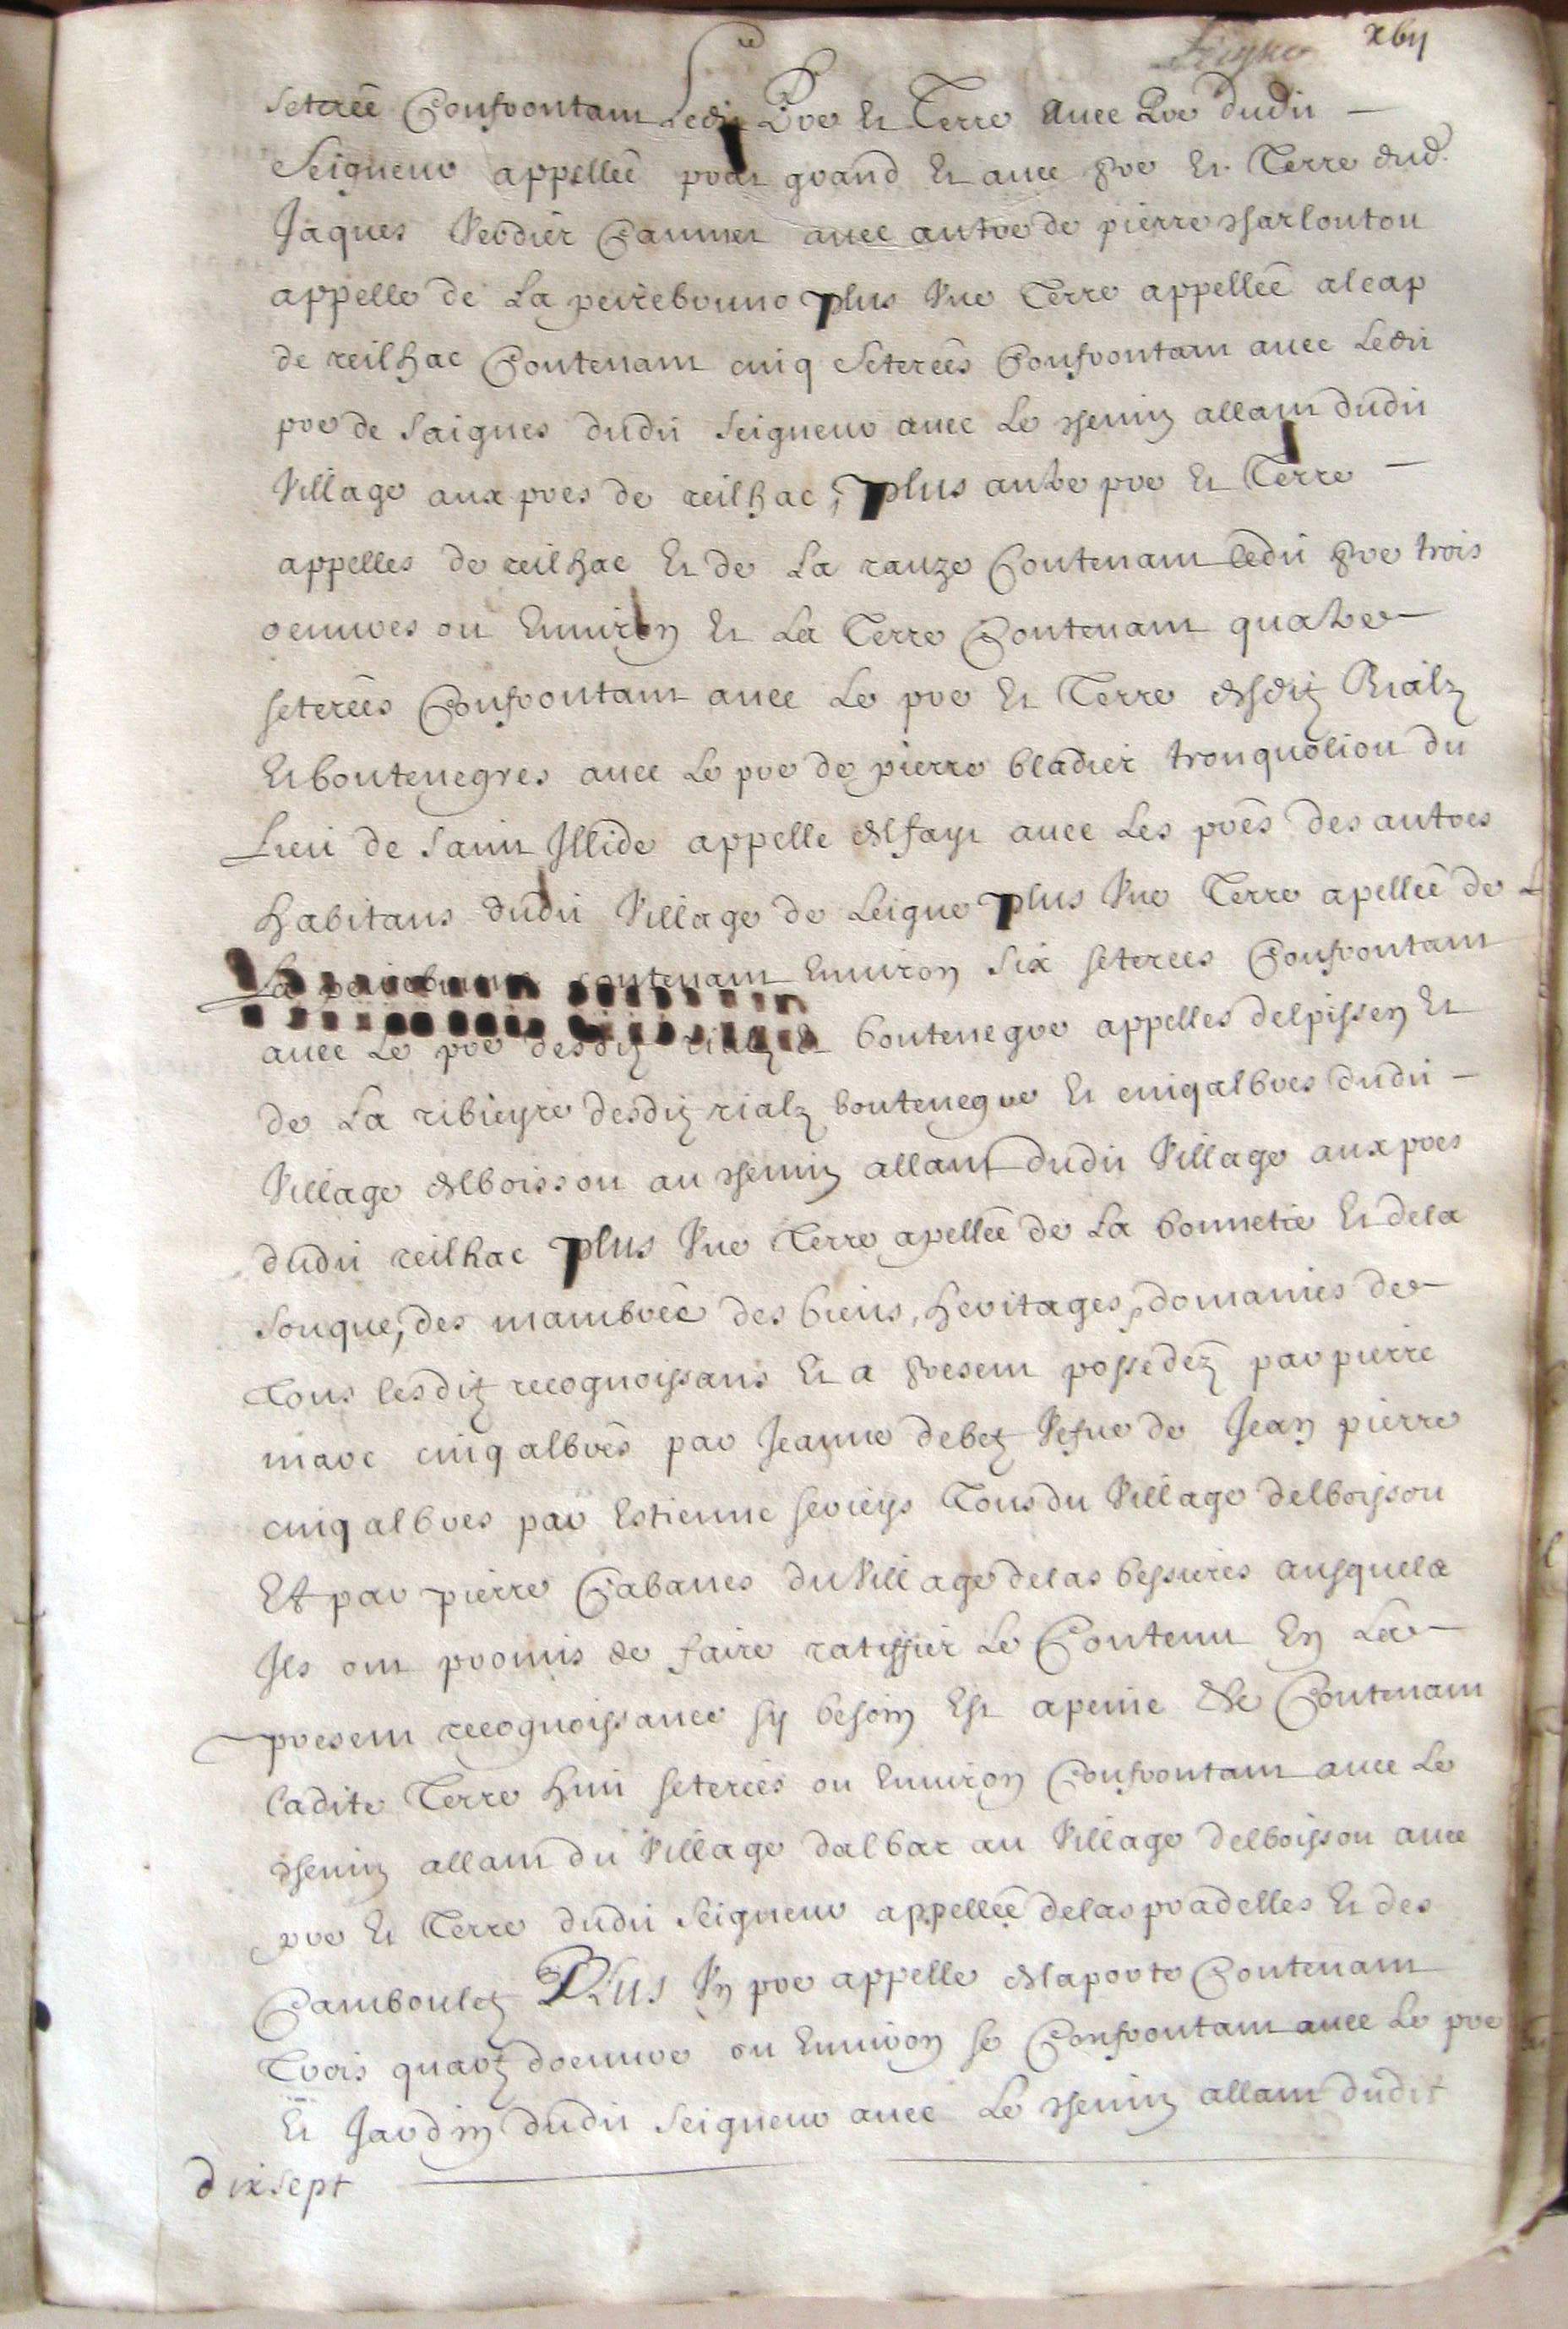 Leigne xbij
seterée Confrontant Ledit Pré Et Terre avec Pré dudit
Seigneur appellée prat grand Et avec pré Et Terre dud.
Jaques Verdier Caumet avec autre de pierre charlouton
appellé de La peirebrune plus Vne Terre appellée al cap
de reilhac Contenant cinq Seterées Confrontant avec Ledit
pré de Saignes dudit Seigneur avec Le chemin allant dudit
Village aux pres de reilhac, plus autre pré Et Terre
appelles de reilhac Et de La rauze Contenant ledit pré trois
oeuures ou Enuiron Et La Terre Contenant quatre
seterées Confrontant avec Le pré Et Terre desditz Rialz
Et boutenegres avec Le pré de pierre bladier tronquoliou du
Lieu de Saint Illide appellé delfayt avec Les prés des autres
habitans dudit Village de Leigne plus Vne Terre apellée de
La peirebrune contenant Enuiron Six seterees Confrontant
avec Le pré desditz rialz Et boutenegre appelles delpissen Et
de La ribieyre desditz rialz boutenegre Et cinqalbres dudit
Village delboissou au chemin allant dudit Village aux pres
dudit reilhac plus Vne Terre apellée de La bonnetie Et de la
Souque, des mambrée des biens, heritages, domaines de
Tous lesditz recognoissans Et a present possedez par pierre
marc cinqalbrès par Jeanne debetz Vefue de Jean pierre
cinqalbres par Estienne serieys Tous du Village delboissou
Et par pierre Cabanes du Village de las bessieres ausquelz
Ils ont promis de faire ratiffier Le Contenu En La
present recognoissance sy besoin Est a peine de Contenant
ladite Terre huit seterées ou Enuiron Confrontant avec Le
chemin allant du Village dalbar au Village delboissou avec
pré Et Terre dudit Seigneur appellée delas pradelles Et des
Cambouletz Plus Vn pré appellé delaporte Contenant
Trois quartz doeuure ou Enuiron se Confrontant avec Le pré
Et Jardin dudit Seigneur avec Le chemin allant dudit
dixsept